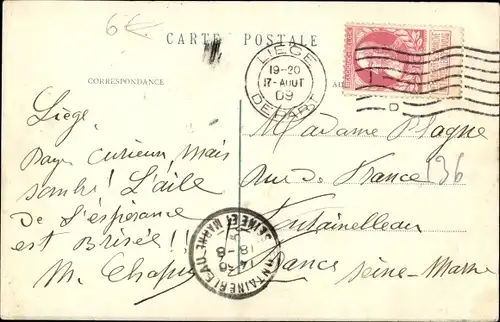 6€
CARTE POSTALE
CORRESPONDANCE
LIEGE
19-20
17-AOUT
09
DEPART
D
Liège
Pays curieux, mais
sombre! L'aile
De l'espérance
est Brisée!!
M. Chapuy
Madame Plagne
rue de France 136
Fontainebleau
France
Seine-Marne
FONTAINEBLEAU
SEINE ET MARNE
18-8